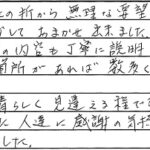 の折から無理な要望
して あまかせ 出来ました。
の内容も丁寧に説明
箇所があれば 数多く
晴らしく 見違える程で
に人達に感謝の気持
した。